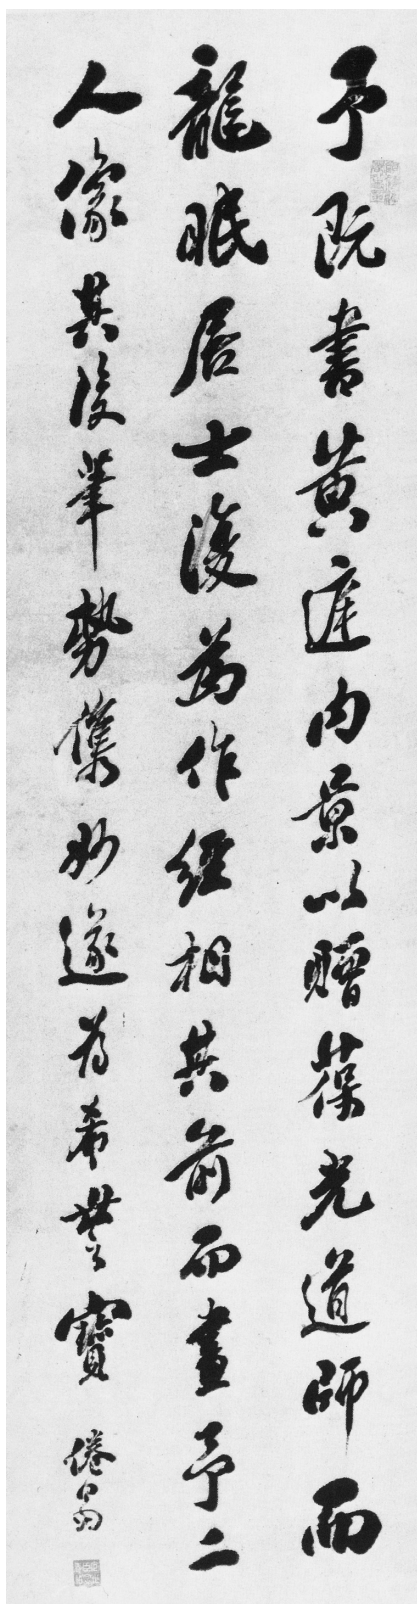 予既書黃庭內景以贈葆光道師而
龍眠居士復為作經相其前而畫予二
人像其後筆勢儁妙遂為希世之寶
倦翁